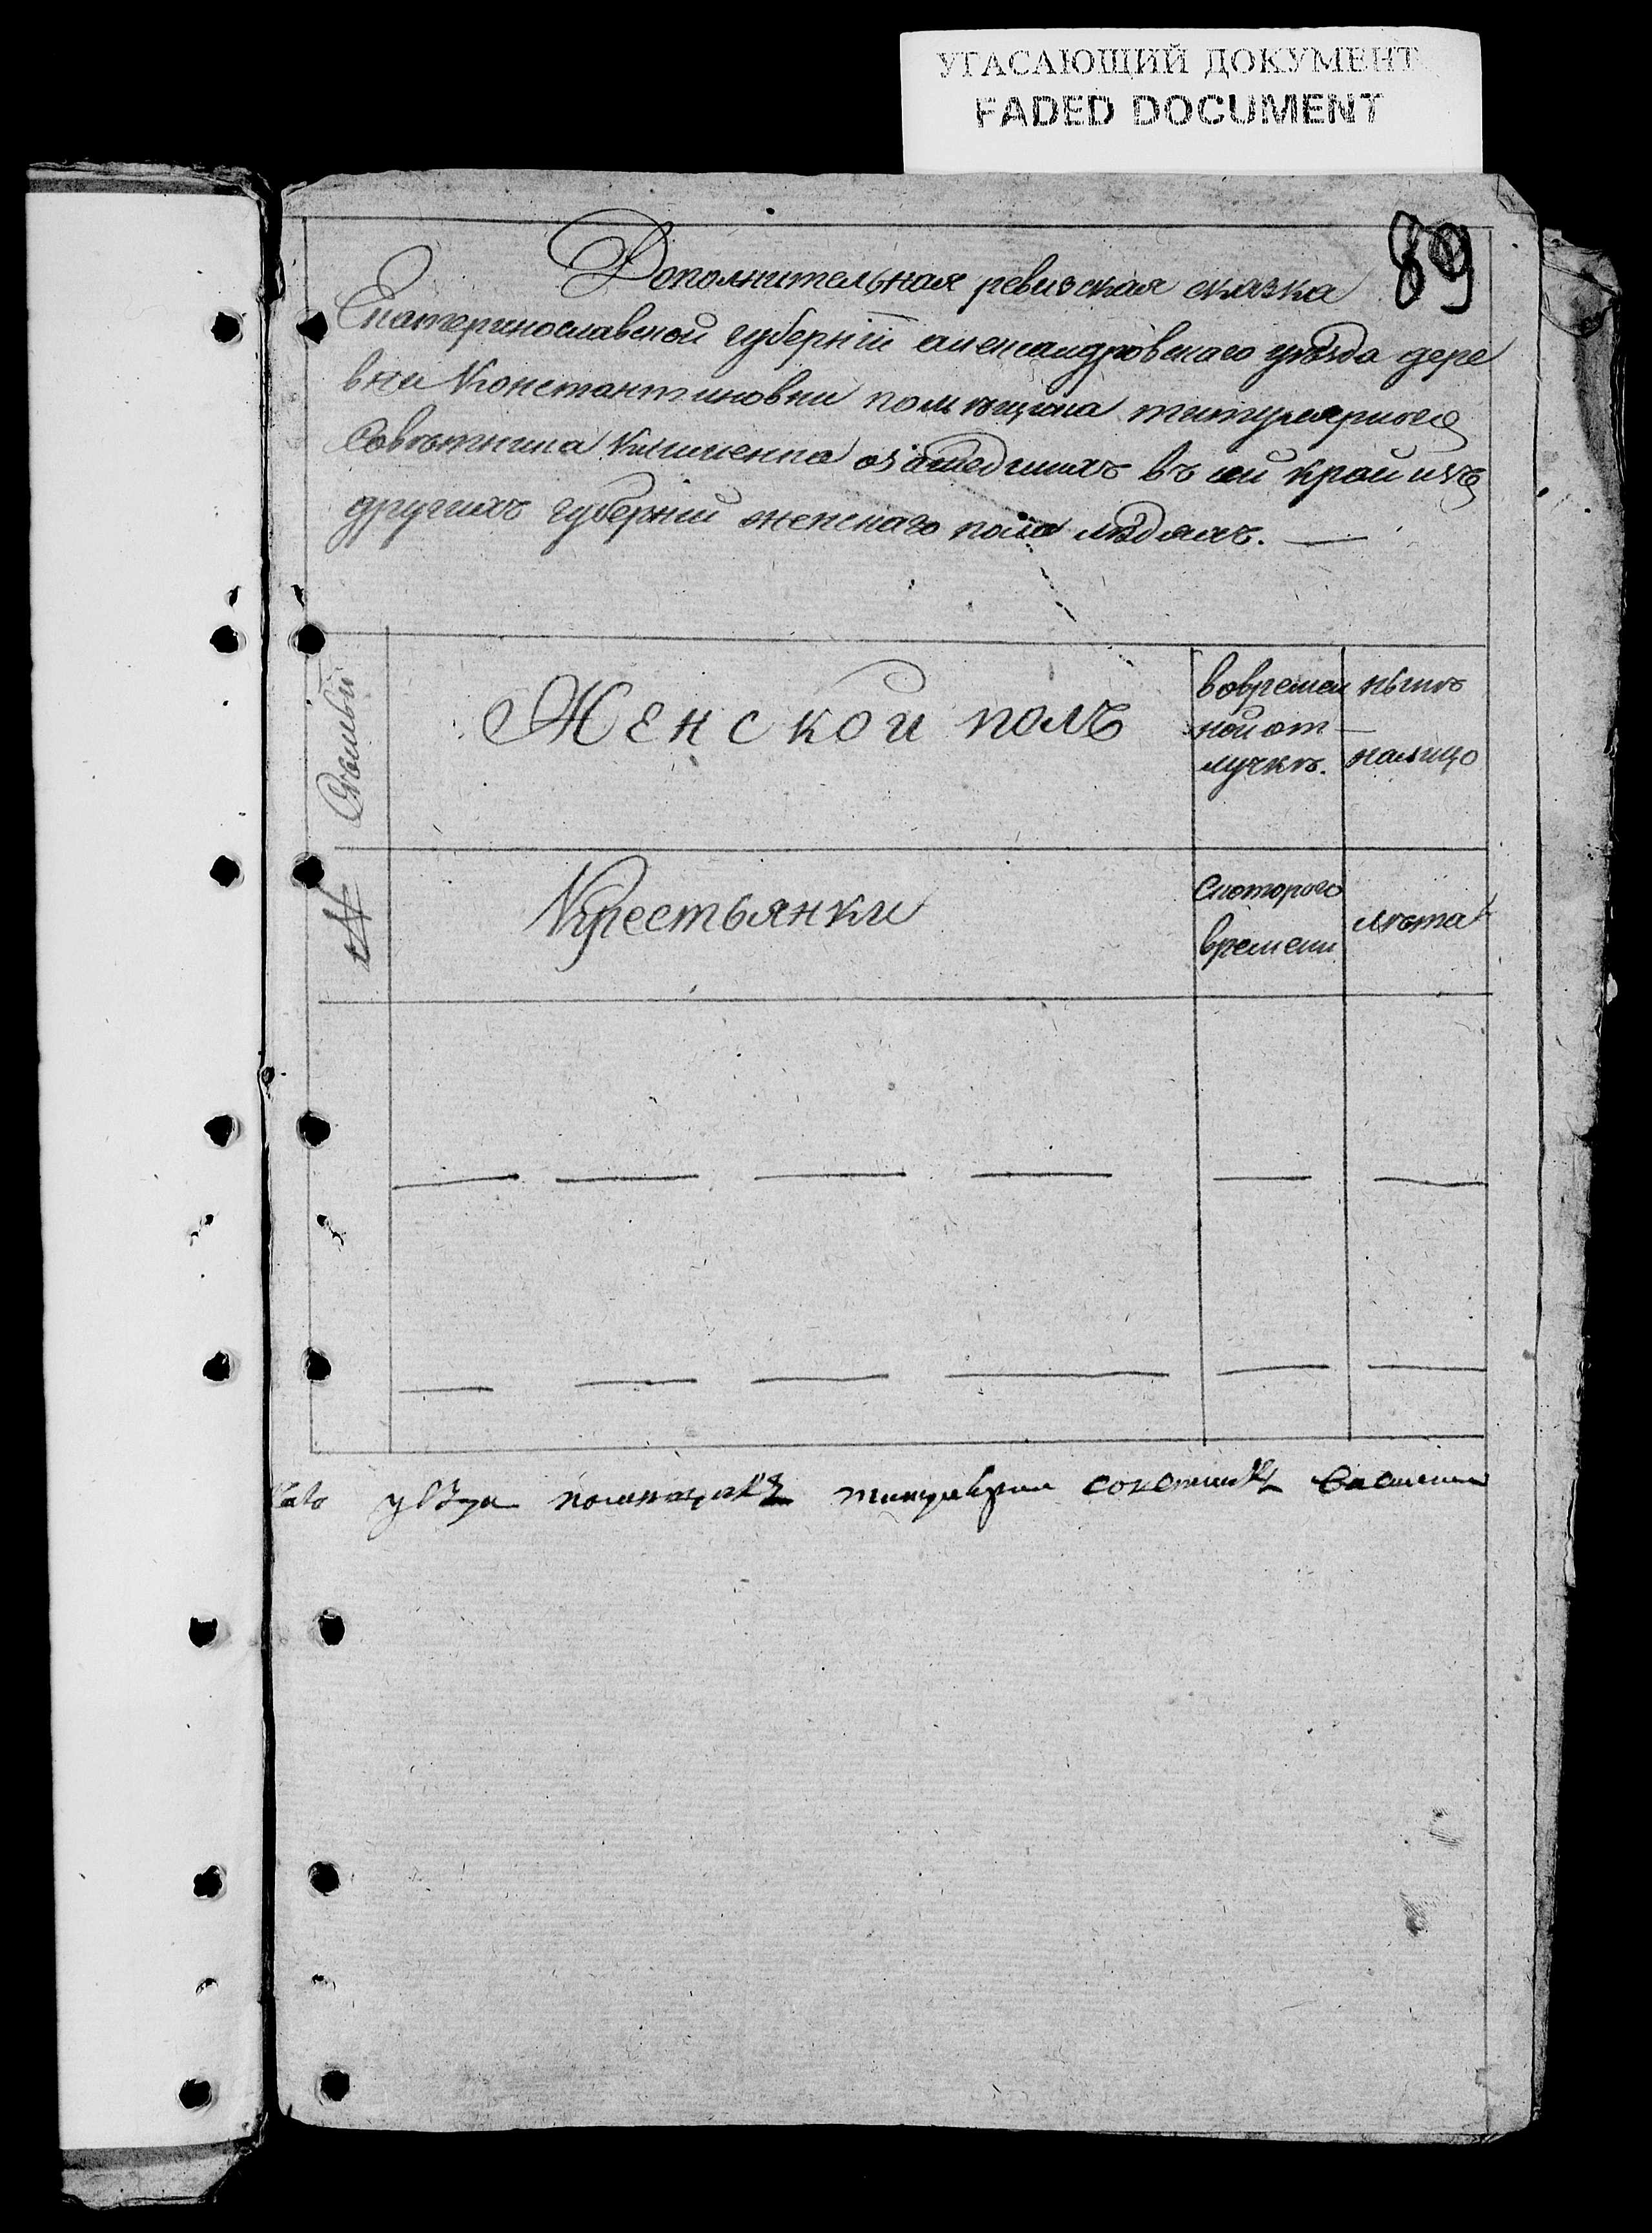 УГАСАЮЩИЙ ДОКУМЕНТ
FADED DOCUMENT
89
Дополнительная ревизская сказка
Екатеринославской губернїи александровскаго уѣзда дере
вни Константиновки помѣщика титулярнаго
Совѣтника озашедшихъ въ сей край изъ
другихъ губернїй женскаго пола людяхъ. —
Семьи
№
Женской полъ
вовремен
ной от
лучкѣ.
нынѣ
—
налицо
Крестьянки
Скоторого
времени
лѣта
уѣзда помещикъ титулярни советникъ